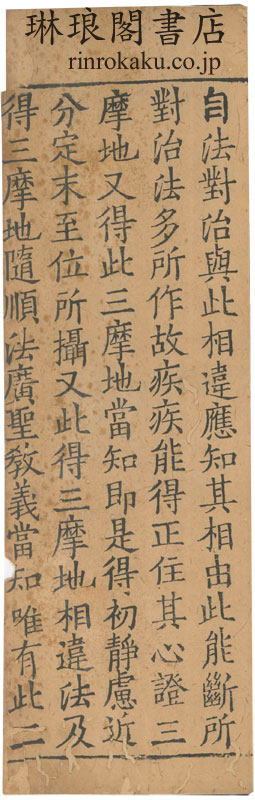 琳琅閣書店
rinrokaku.co.jp
自法對治與此相違應知其相由此能斷所
對治法多所作故疾疾能得正住其心證三
摩地又得此三摩地當知即是得初靜慮近
分定未至位所攝又此得三摩地相違法及
得三摩地隨順法廣聖教義當知唯有此二